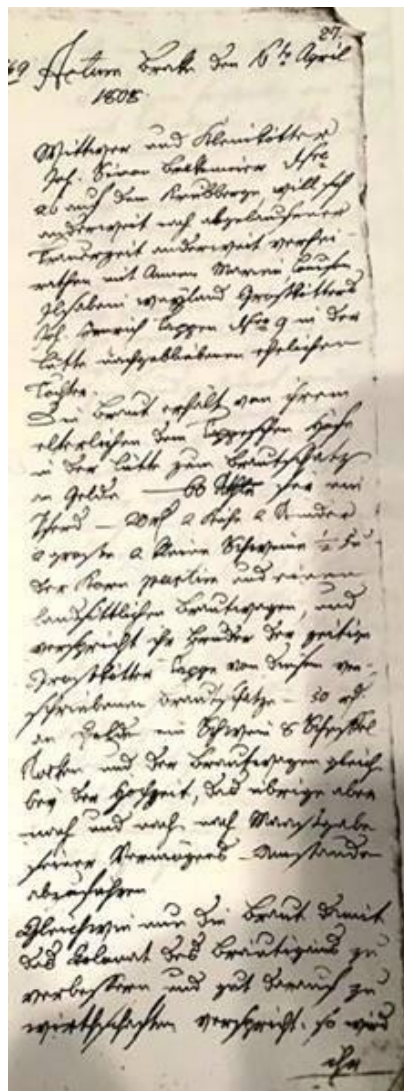 27.
49 Actum Brake den 16ten April
1808
Wittwer und Kleinkötter
Joh. Simon Beckemeier No
20 auf dem Krubberge, will sich
anderweit nach abgelaufener
Trauerzeit anderweit verhei-
rathen mit Annen Marien
Ilsabein weyland Großkötters
Joh. Henrich Tappen No 9 in der
Lütte nachgebliebenen ehelichen
Tochter.
Die Braut erhält von ihrem
elterlichen dem Tappeschen Hofe
in der Lütte zum Brautschatz
an Gelde — 60 Rthlr für ein
Pferd — 20 rth 2 Kühe 2 Rinder
2 große 2 kleine Schweine 1/2 Fu-
der Korn partim und einen
landsittlichen Brautwagen, und
verspricht ihr Bruder der zeitige
Großkötter Tappe von diesem ver-
schriebenen Brautschatze — 30 rth
an Gelde ein Schwein 8 Scheffel
Rocken und der Brautwagen gleich
bey der Hochzeit, das übrige aber
nach und nach nach Maasgabe
seiner Vermögens-Umstände
abzuführen
Gleichwie nun die Braut damit
das Colonat des Bräutigams zu
verbessern und gut darauf zu
wirthschaften verspricht. so wird
ihr